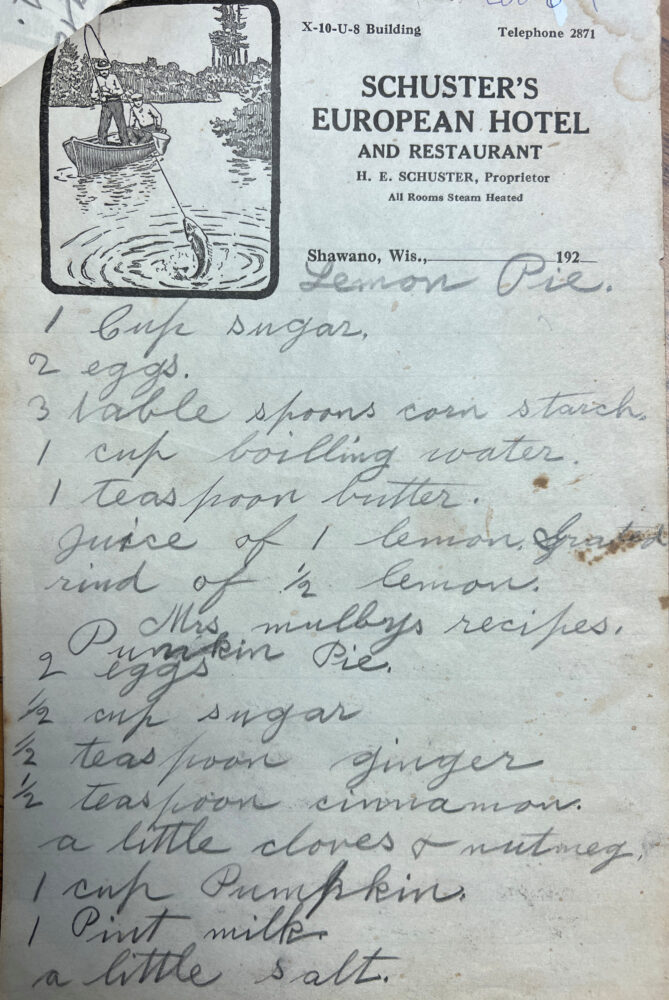 X-10-U-8 Building Telephone 2871
SCHUSTER'S
EUROPEAN HOTEL
AND RESTAURANT
H. E. SCHUSTER, Proprietor
All Rooms Steam Heated
Shawano, Wis., 192
Lemon Pie.
1 Cup sugar.
2 eggs.
3 table spoons corn starch.
1 cup boilling water.
1 teaspoon butter.
Juice of 1 lemon. Grated
rind of 1/2 lemon.
Mrs mulbys recipes.
Pumkin Pie.
2 eggs
1/2 cup sugar
1/2 teaspoon ginger
1/2 teaspoon cinnamon.
a little cloves & nutmeg.
1 cup Pumpkin.
1 Pint milk.
a little salt.